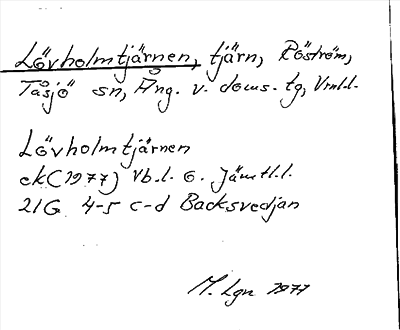 Lövholmtjärnen, tjärn, Röström,
Tåsjö sn, Ång. v. doms. tg, Vrml.l.
Lövholmtjärnen
ek (1977) Vb.l. o. Jämtl.l.
21G 4-5 c-d Backsvedjan
M. Lgn 1977